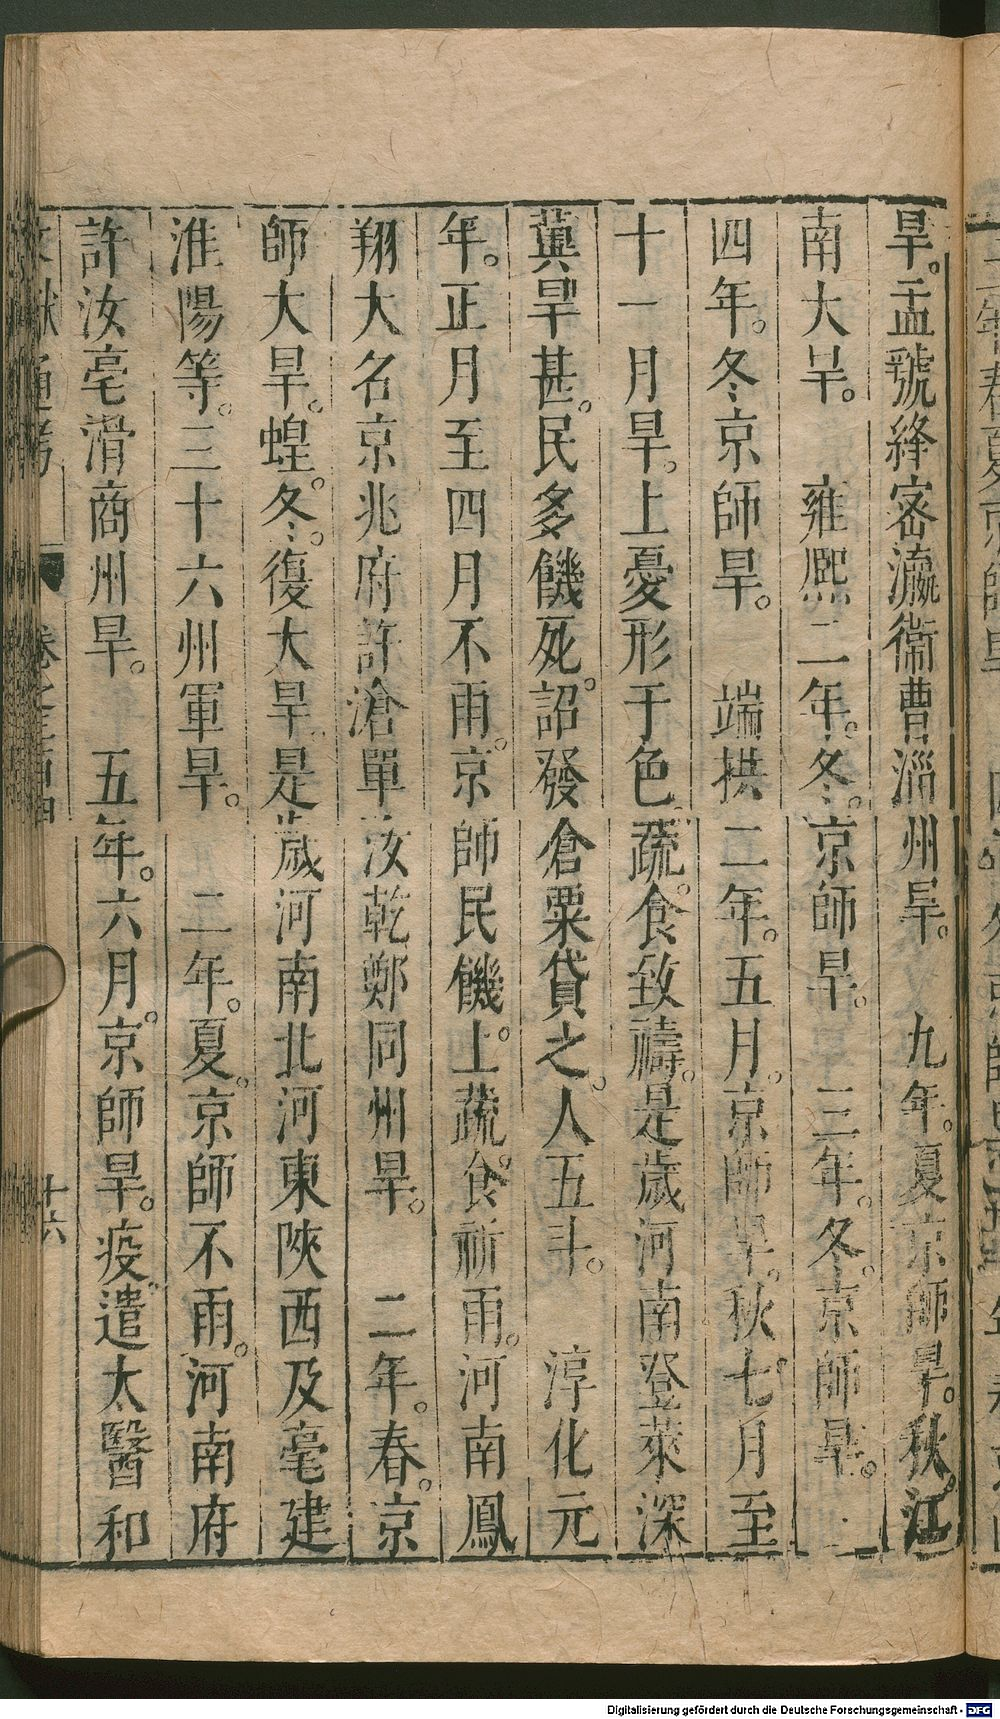 旱。孟虢絳密瀛衞曹淄州旱。　九年。夏京師旱。秋。江
南大旱。　雍熙二年。冬。京師旱。　三年。冬。京師旱。
四年。冬京師旱。　端拱二年。五月。京師旱。秋七月至
十一月旱。上憂形于色。蔬食致禱。是歲河南登萊深
冀旱甚。民多饑死。詔發倉粟貸之。人五斗。　淳化元
年。正月至四月不雨。京師民饑。上蔬食祈雨。河南鳳
翔大名京兆府許滄單汝乾鄭同州旱。　二年。春。京
師大旱。蝗。冬。復大旱。是歲河南北河東陝西及亳建
淮陽等。三十六州軍旱。　二年。夏。京師不雨。河南府
許汝亳滑商州旱。　五年。六月。京師旱。疫。遣太醫和
十六
Digitalisierung gefördert durch die Deutsche Forschungsgemeinschaft - DFG